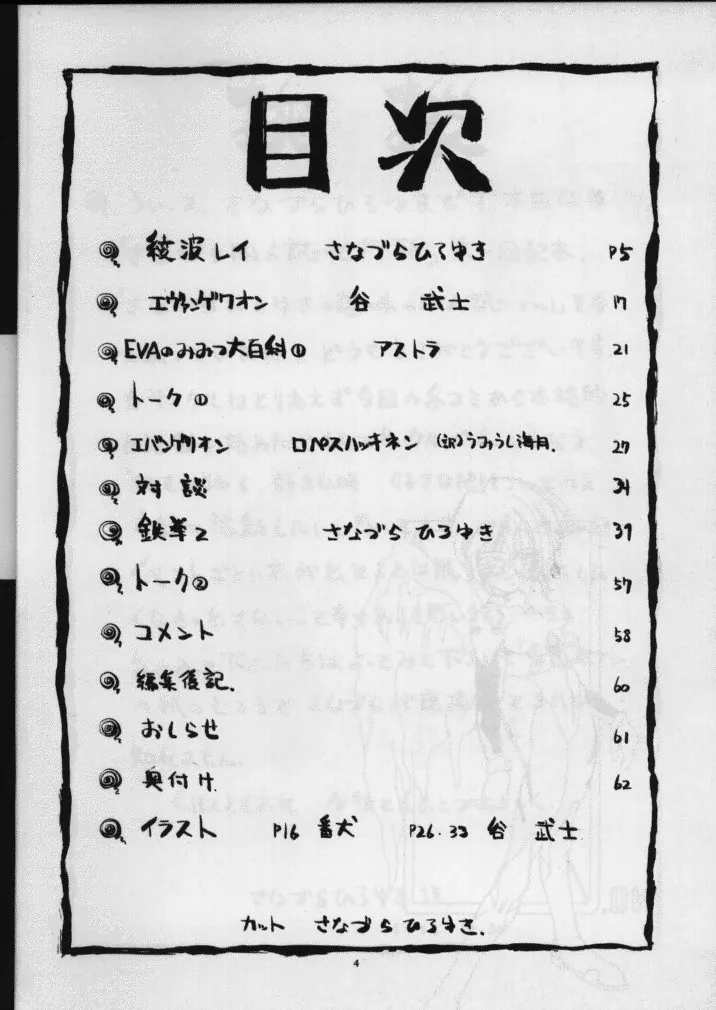 目次
綾波レイ さなづらひろゆき P5
エヴァンゲリオン 谷 武士 17
EVAのみみつ大百科① アストラ 21
トーク① 25
エバンゲリオン ロペスハッキネン (訳)うみうし海月. 27
対談 34
鉄拳2 さなづらひろゆき 39
トーク② 57
コメント 58
編集後記. 60
おしらせ 61
奥付け. 62
イラスト P16 番犬 P26.33 谷 武士
カット さなづらひろゆき.
4